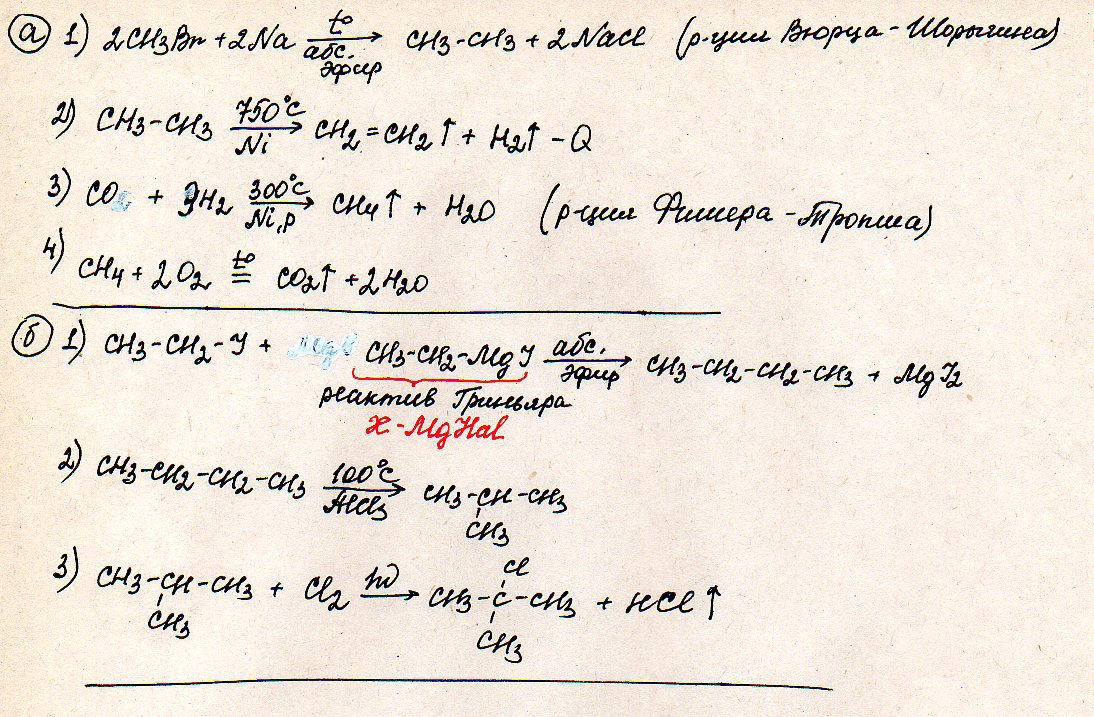 а 1) 2CH3Br + 2Na t° абс. эфир → CH3-CH3 + 2NaCl (р-ция Вюрца-Шорыгина)
2) CH3-CH3 750°C Ni → CH2=CH2↑ + H2↑ - Q
3) CO + 3H2 300°C Ni,p → CH4↑ + H2O (р-ция Фишера-Тропша)
4) CH4 + 2O2 t° = CO2↑ + 2H2O
б 1) CH3-CH2-I + CH3-CH2-MgI абс. эфир → CH3-CH2-CH2-CH3 + MgI2
реактив Гриньяра
X-MgHal
2) CH3-CH2-CH2-CH3 100°C AlCl3 → CH3-CH-CH3
CH3
Cl
3) CH3-CH-CH3 + Cl2 hν → CH3-C-CH3 + HCl↑
CH3 CH3